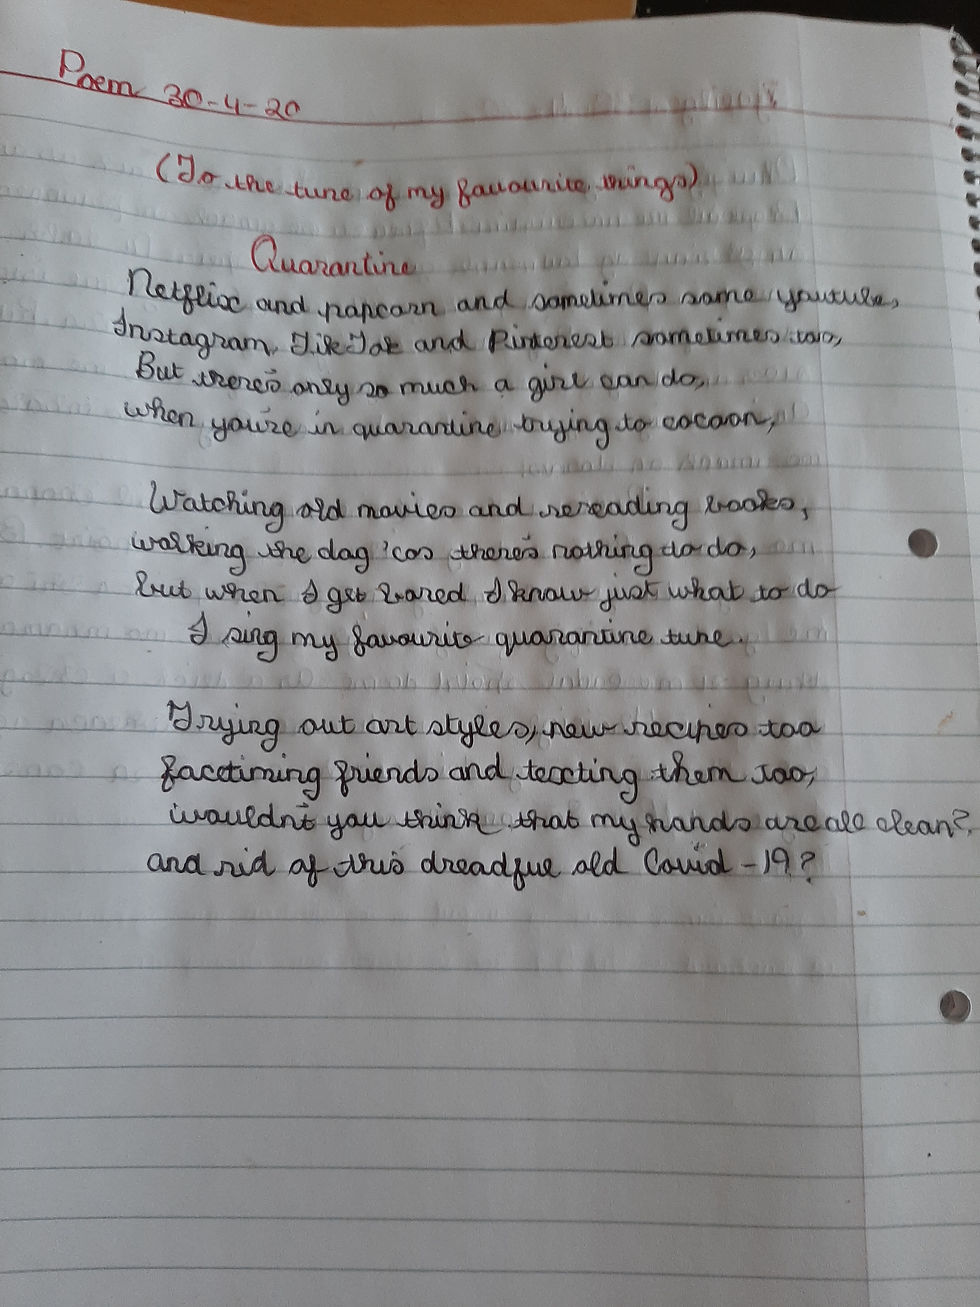 Poem 30-4-20
(To the tune of my favourite things)
Quarantine
Netflix and popcorn and sometimes some youtube,
Instagram, TikTok and Pinterest sometimes too,
But there's only so much a girl can do,
when you're in quarantine trying to cocoon,
Watching old movies and rereading books,
walking the dog 'cos there's nothing to do,
but when I get bored I know just what to do
I sing my favourite quarantine tune.
Trying out art styles, new recipes too
facetiming friends and texting them too,
wouldn't you think that my hands are all clean?
and rid of this dreadful old Covid-19?